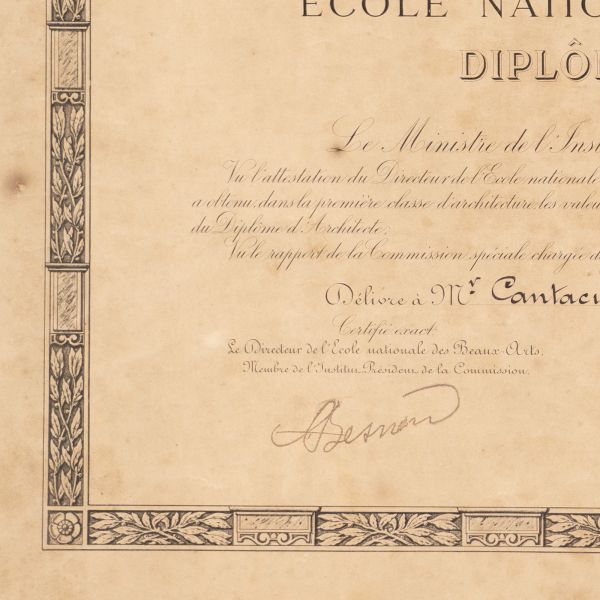 ECOLE NATIO
DIPLÔ
Le Ministre de l'Inst
Vu l'attestation du Directeur de l'Ecole nationale
a obtenu, dans la première classe d'architecture, les valeu
du Diplôme d'Architecte;
Vu le rapport de la Commission spéciale chargée d
Délivre à Mr Cantacu
Certifié exact:
Le Directeur de l'Ecole nationale des Beaux-Arts,
Membre de l'Institut, Président de la Commission.
Besnard